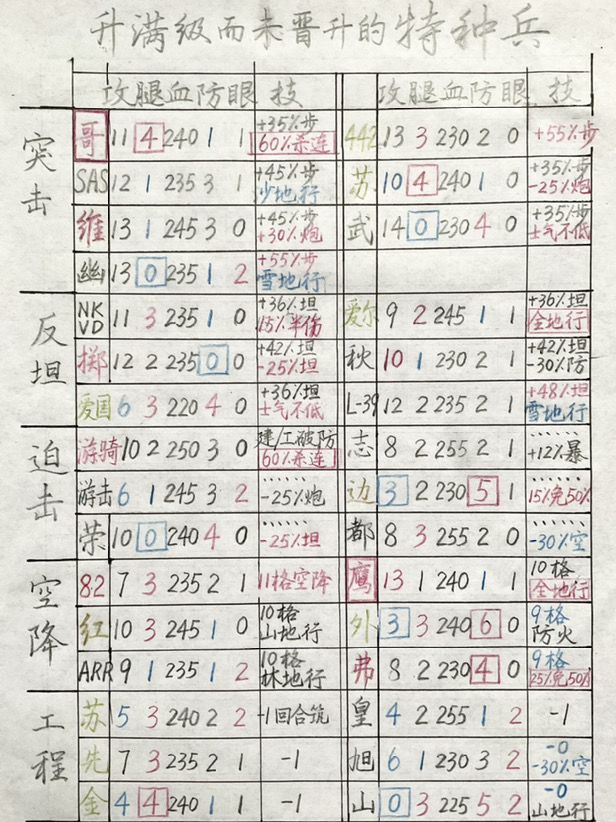 升满级而未晋升的特种兵
攻腿血防眼 技 攻腿血防眼 技
突击
哥 11 4 240 1 1 +35%步 60%杀连 442 13 3 230 2 0 +55%步
SAS 12 1 235 3 1 +45%步 沙地行 苏 10 4 240 1 0 +35%步 -25%炮
维 13 1 245 3 0 +45%步 +30%炮 武 14 0 230 4 0 +35%步 士气不低
幽 13 0 235 1 2 +55%步 雪地行
反坦
NKVD 11 3 235 1 0 +36%坦 15%半伤 爱尔 9 2 245 1 1 +36%坦 全地行
掷 12 2 235 0 0 +42%坦 -25%坦 秋 10 1 230 2 1 +42%坦 -30%防
爱国 6 3 220 4 0 +36%坦 士气不低 L-39 12 2 235 2 1 +48%坦 雪地行
迫击
游骑 10 2 250 3 0 建/工破防 60%杀连 志 8 2 255 2 1 …… +12%暴
游击 6 1 245 3 2 …… -25%炮 边 3 2 230 5 1 …… 15%免50%
荣 10 0 240 4 0 …… -25%坦 都 8 3 255 2 0 …… -30%空
空降
82 7 3 235 2 1 11格空降 鹰 13 1 240 1 1 10格 全地行
红 10 3 245 1 0 10格 山地行 外 3 3 240 6 0 9格 防火
ARR 9 1 235 1 2 10格 林地行 弗 8 2 230 4 0 9格 25%免50%
工程
苏 5 3 240 2 2 -1回合筑 皇 4 2 255 1 2 -1
先 7 3 235 2 1 -1 旭 6 1 230 3 2 -0 -30%空
金 4 4 240 1 1 -1 山 0 3 225 5 2 -0 山地行